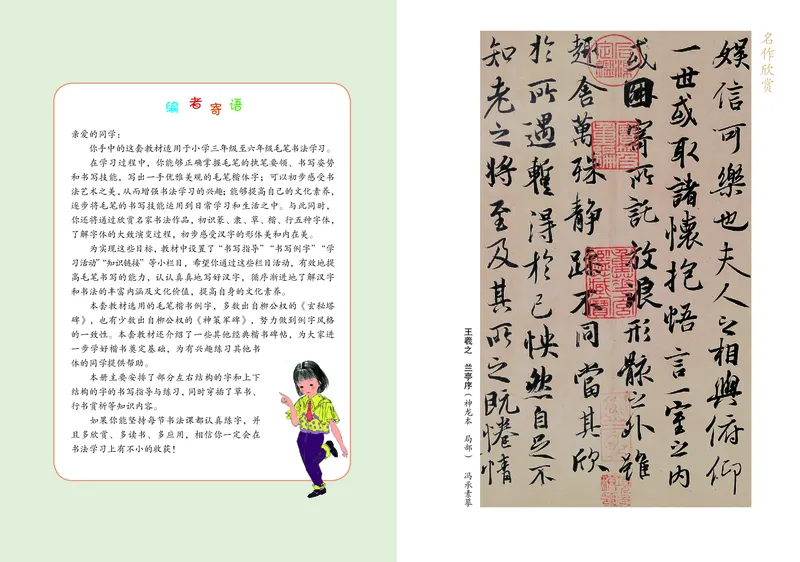 编者寄语
亲爱的同学：
你手中的这套教材适用于小学三年级至六年级毛笔书法学习。
在学习过程中，你能够正确掌握毛笔的执笔要领、书写姿势
和书写技能，写出一手优雅美观的毛笔楷体字；可以初步感受书
法艺术之美，从而增强书法学习的兴趣；能够提高自己的文化素养，
逐步将毛笔的书写技能运用到日常学习和生活之中。与此同时，
你还将通过欣赏名家书法作品，初识篆、隶、草、楷、行五种字体，
了解字体的大致演变过程，初步感受汉字的形体美和内在美。
为实现这些目标，教材中设置了“书写指导”“书写例字”“学
习活动”“知识链接”等小栏目，希望你通过这些栏目活动，有效地提
高毛笔书写的能力，认认真真地写好汉字，循序渐进地了解汉字
和书法的丰富内涵及文化价值，提高自身的文化素养。
本套教材选用的毛笔楷书例字，多数出自柳公权的《玄秘塔
碑》，也有少数出自柳公权的《神策军碑》，努力做到例字风格
的一致性。本套教材还介绍了一些其他经典楷书碑帖，为大家进
一步学好楷书奠定基础，为有兴趣练习其他书
体的同学提供帮助。
本册主要安排了部分左右结构的字和上下
结构的字的书写指导与练习，同时穿插了草书、
行书赏析等知识内容。
如果你能坚持每节书法课都认真练字，并
且多欣赏、多读书、多应用，相信你一定会在
书法学习上有不小的收获！
名作欣赏
娱信可樂也夫人之相與俯仰
一世或取諸懷抱悟言一室之内
或因寄所託放浪形骸之外雖
趣舍萬殊静躁不同當其欣
於所遇暫得於己怏然自足不
知老之將至及其所之既惓情
王羲之 兰亭序（神龙本 局部） 冯承素摹